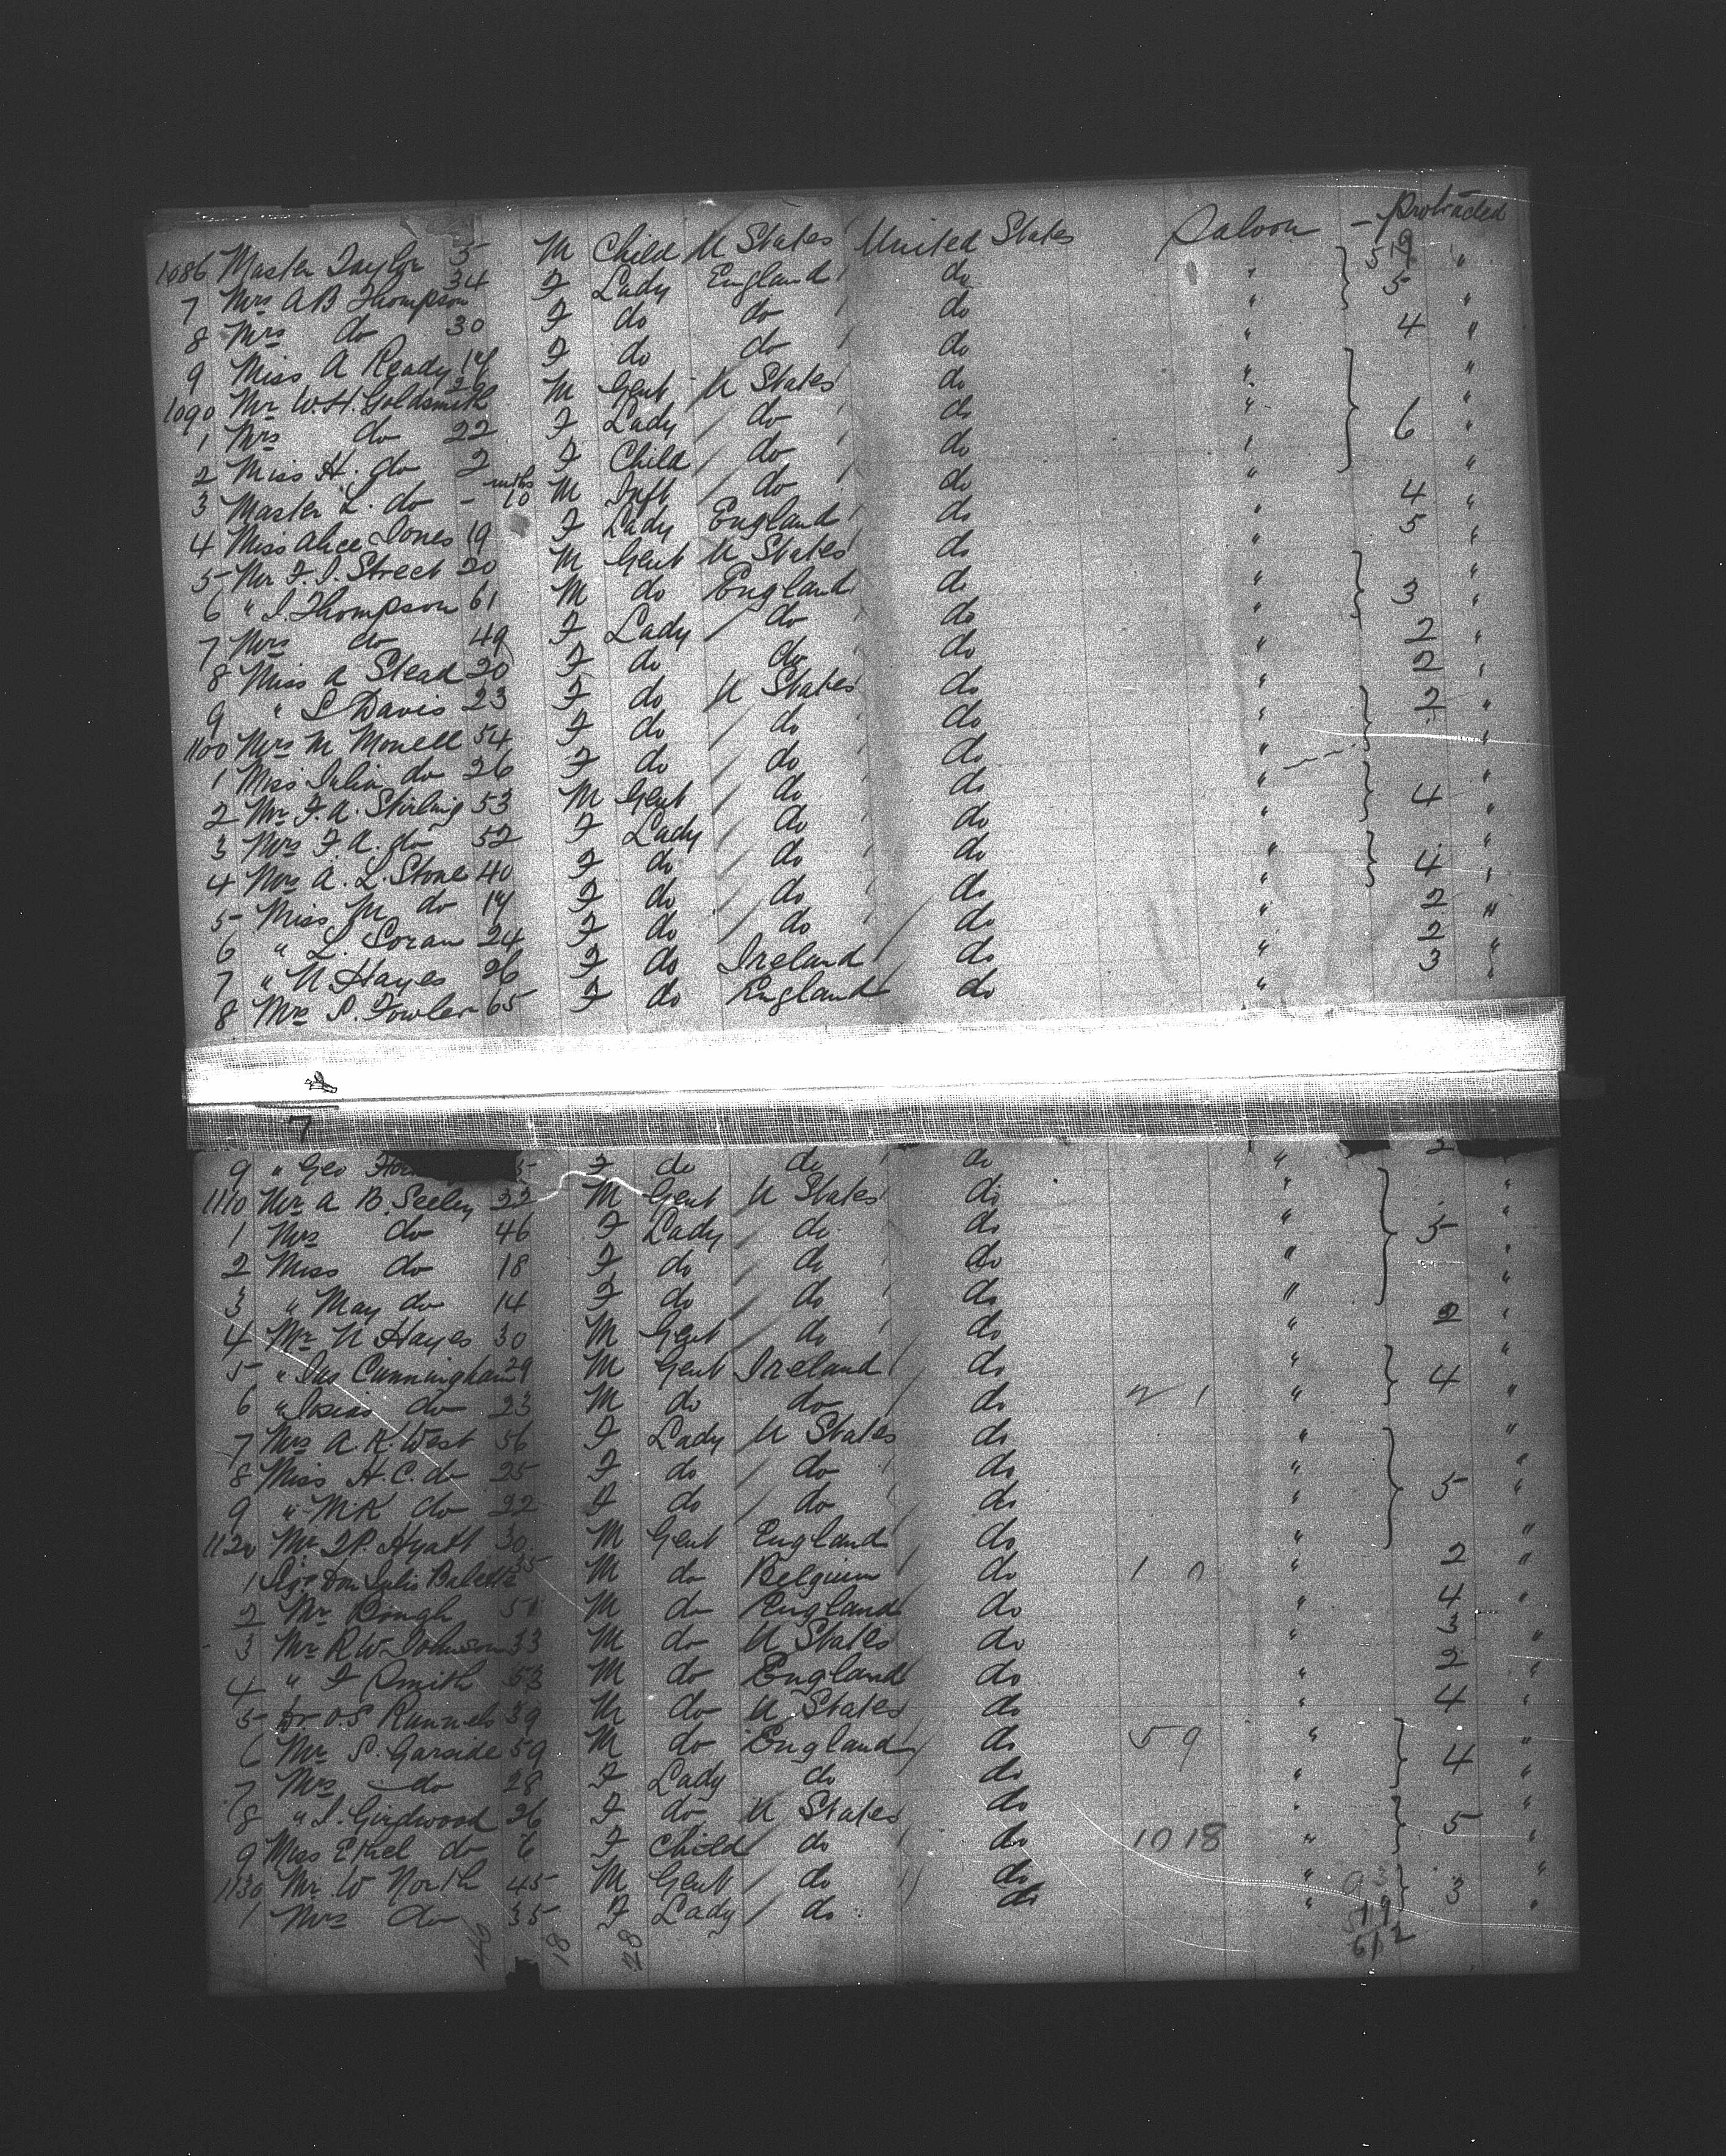 1086 Master Taylor 5 M Child U States United States Saloon - Protracted
7 Mrs A B Thompson 34 F Lady England do " 5 "
8 Mrs do 30 F do do do " "
9 Miss A Ready 14 F do do do " 4 "
1090 Mr W. H. Goldsmith 29 M Gent U States do " "
1 Mrs do 22 F Lady do do " 6 "
2 Miss H. do 2 F Child do do " "
3 Master L. do - mths 10 M Inft do do " "
4 Miss Alice Jones 19 F Lady England do " 4 "
5 Mr F. J. Street 20 M Gent U States do " 5 "
6 " J. Thompson 61 M do England do " 3 "
7 Mrs do 49 F Lady do do " "
8 Miss A Stead 20 F do do do " 2 "
9 " S Davis 23 F do U States do " 2 "
1100 Mrs M Monell 54 F do do do " 2 "
1 Miss Julia do 26 F do do do " "
2 Mr F. A. Stirling 53 M Gent do do " 4 "
3 Mrs F. A. do 52 F Lady do do " "
4 Mrs A. L. Stone 40 F do do do " 4 "
5 Miss M do 14 F do do do " "
6 " L. Soran 24 F do do do " 2 "
7 " N Hayes 26 F do Ireland do " 2 "
8 Mrs S. Fowler 65 F do England do " 3 "
7
9 " Geo F do do do " 2 "
1110 Mr A B. Seeley 22 M Gent U States do " "
1 Mrs do 46 F Lady do do " 5 "
2 Miss do 18 F do do do " "
3 " May do 14 F do do do " "
4 Mr N Hayes 30 M Gent do do " 2 "
5 " Jas Cunningham 29 M Gent Ireland do " 4 "
6 " Josias do 23 M do do do " "
7 Mrs A. K. West 56 F Lady U States do " "
8 Miss H. C. do 25 F do do do " 5 "
9 " M K do 22 F do do do " "
1120 Mr J P. Hyatt 30 M Gent England do " "
1 Don Julio 35 M do Belgium do " 2 "
2 Mr Bough 51 M do England do " 4 "
3 Mr R W Johnson 33 M do U States do " 3 "
4 " F Smith 53 M do England do " 2 "
5 Dr O S Runnels 39 M do U States do " 4 "
6 Mr S. Garside 59 M do England do 5 9 " 4 "
7 Mrs do 28 F Lady do do " "
8 " J. Girdwood 26 F do U States do " 5 "
9 Miss Ethel do 6 F Child do do 10 18 " "
1130 Mr W North 45 M Gent do do " 93 3 "
1 Mrs do 35 F Lady do do " 519 "
18 28 612